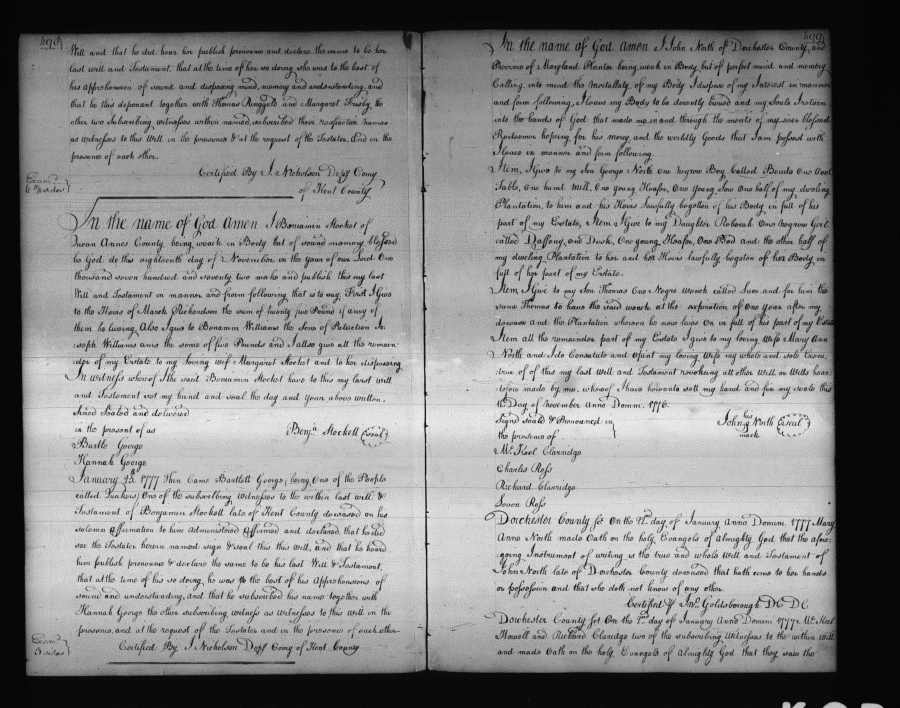 498
Will and that he did hear her publish pronounce and declare the same to be her
last will and Testament, that at the time of her so doing she was to the best of
his apprehension of sound and disposing mind, memory and understanding and
that he this deponant together with Thomas Ringgold and Margaret Frisby the
other two Subscribing witnesses within named, subscribed there respective names
as witnesses to this Will in the presence & at the request of the Testator, and in the
presence of each other.
Certified By J. Nicholson Depy Comy
of Kent County
Exam'd
In the name of God Amen I Benjamin Stocket of
Queen Annes County being weack in Body but of sound memory blessed
be God do this eighteenth day of November in the year of our Lord One
thousand seven hundred and seventy two make and publish this my last
Will and Testament in manner and form following, that is to say, First I give
to the Heirs of March Richardson the sum of twenty five Pound if aney of
them be liveing, Also I give to Benamin Williams the Sons of
seph Williams ams the some of five Pounds and I allso give all the remain-
der of my Estate to my Loving wife Margaret Stocket and to her disspossing
In witness whereof I the said Benjamin Stocket have to this my last will
and Testament set my hand and seal the day and year above written.
Sined Sealed and delivered
in the present of us
Benja. Stockett (seal)
Bartlt George
Hannah George
January 25th 1777 Then came Bartlett George, being One of the People
called Quakers, One of the subscribing witnesses to the within last will &
Testament of Benjamin Stockett late of Kent County deceased on his
solemn affirmation to him Administered affirmed and declared, that he did
see the Testator herein named sign & seal this this will, and that he heard
him publish pronounce & declare the same to be his last Will & Testament,
that at the time of his so doing, he was to the best of his Apprehensions of
sound and understanding, and that he subscribed his name together with
Hannah George the other subscribing witness as witnesses to this will in the
presence, and at the request of the Testator and in the presence of each other
Certified By J. Nicholson Depy Comy of Kent County
Exam'd
3 sides
499
In the name of God Amen I John North of Dorchester County, and
Province of Maryland Planter being weak in Body but of perfect mind and memory
Calling into mind the Mortallaty of my Body I dispose of my Interest in manner
and form following, I leave my Body to be decently buried and my Soule I return
into the hands of God that made me in and through the merits of my ever blessed
Redeemer hopeing for his mercy, and the worldly Goods that I am possest with
I leave in manner and form following.
Item, I give to my Son George North one negrow Boy called one Oval
Table, one hand Mill, One young Heafer, One young Sow One half of my dweling
Plantation, to him and his Heirs Lawfully begotten of his Body, in full of his
part of my Estate, Item I Give to my Daughter Rebecah One negrow Girl
called one Desk, One young Heafer, One Bed and the other half of
my dweling Plantation to her and her Heirs lawfully begoton of her Body in
full of her part of my Estate.
Item, I give to my Son Thomas One Negro wench called and for him the
same Thomas to have the said wench at the expiration of One year after my
deceace and the Plantation whereon he now lives On in full of his part of my Estate
Item all the remainder part of my Estate I give to my loving Wife Mary Ann
North and I do my loving Wife my whole and sole Execu
trix of this my last will and Testament revokeing all other Will or Wills heare
tofore made by me, whereof I have hereunto sett my hand and fix my seale, this
Day of November Anno Domn. 1776.
Signd seald & Pronounced in
the presence of
John North (seal)
his
mark
Charles Ross
Richard Clarridge
Ross
Dorchester County sct On the 22d day of January Anno Domini 1777 Mary
Anne North made Oath on the holy Evangels of Almighty God that the afore-
going Instrument of writing is the true and whole Will and Testament of
John North late of Dorchester County deceased that hath come to her hands
or possession and that she doth not know of any other.
Certified By Jno. Goldsborough DC DC
Dorchester County Sct On the day of January Anno Domini 1777
Howell and Richard Claridge two of the subscribing Witnesses to the within will
and made Oath on the holy Evangels of Almighty God that they saw the